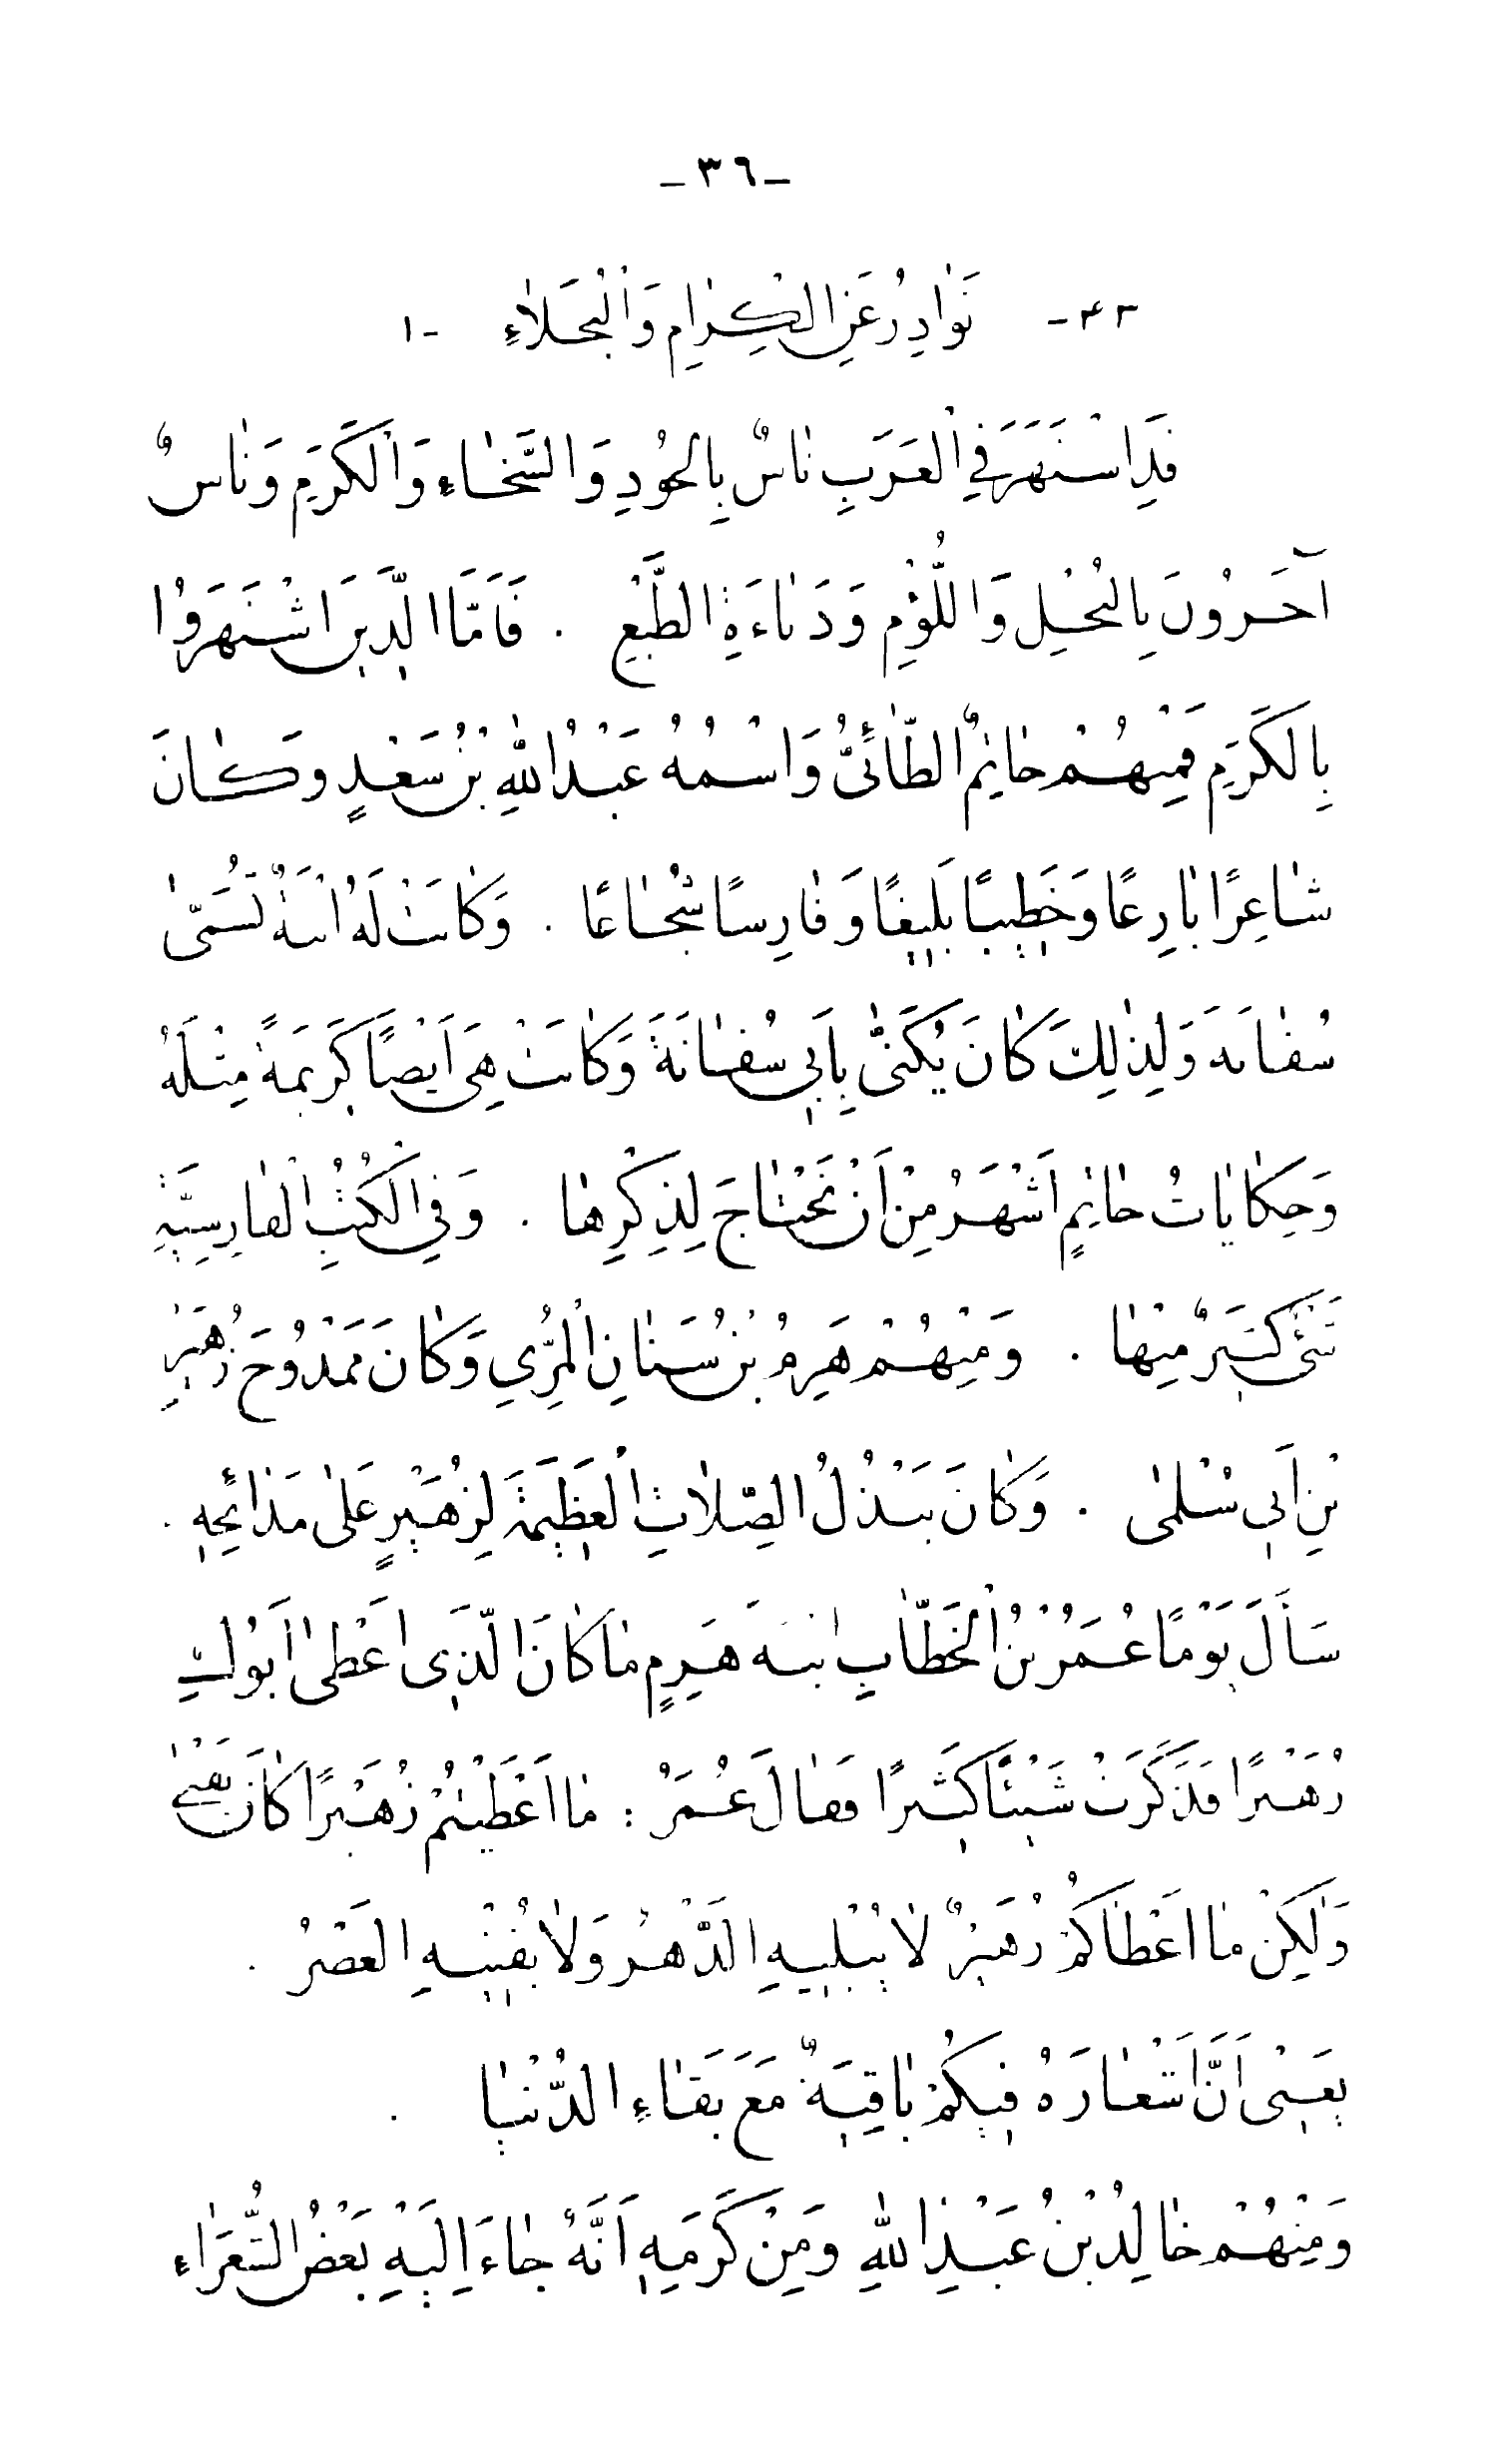 -٣٦-
٤٣- نَوٰادِرُ عَنِ الْكِرٰامِ وَالْبُخَلٰاءِ -١
قَدِ اشْتَهَرَ فِي الْعَرَبِ نٰاسٌ بِالْجُودِ وَالسَّخٰاءِ وَالْكَرَمِ وَنٰاسٌ
آخَرُونَ بِالْبُخْلِ وَاللُّؤْمِ وَدَنٰاءَةِ الطَّبْعِ . فَاَمَّا الَّذِينَ اشْتَهَرُوا
بِالْكَرَمِ فَمِنْهُمْ حٰاتِمٌ الطّٰائِىُّ وَاسْمُهُ عَبْدُ اللّٰهِ بْنُ سَعْدٍ وَكٰانَ
شٰاعِرًا بٰارِعًا وَخَطِيبًا بَلِيغًا وَفٰارِسًا شُجٰاعًا . وَكٰانَتْ لَهُ ابْنَةٌ تُسَمّىٰ
سُفٰانَةَ وَلِذٰلِكَ كٰانَ يُكَنّىٰ بِاَبِى سُفٰانَةَ وَكٰانَتْ هِىَ اَيْضًا كَرِيمَةً مِثْلَهُ
وَحِكٰايٰاتُ حٰاتِمٍ اَشْهَرُ مِنْ اَنْ نَحْتٰاجَ لِذِكْرِهٰا . وَفِي الْكُتُبِ الْفٰارِسِيَّةِ
شَىْءٌ كَثِيرٌ مِنْهٰا . وَمِنْهُمْ هَرِمُ بْنُ سَنٰانِ الْمُرِّي وَكٰانَ مَمْدُوحَ زُهَيْرِ
بْنِ اَبِى سُلْمىٰ . وَكٰانَ يَبْذُلُ الصِّلٰاتِ الْعَظِيمَةَ لِزُهَيْرٍ عَلىٰ مَدٰائِحِهِ .
سَأَلَ يَوْمًا عُمَرُ بْنُ الْخَطّٰابِ ابْنَةَ هَرِمٍ مٰا كٰانَ الَّذِى اَعْطىٰ اَبُوكِ
زُهَيْرًا فَذَكَرَتْ شَيْئًا كَثِيرًا فَقٰالَ عُمَرُ : مٰا اَعْطَيْتُمْ زُهَيْرًا كٰانَ يَفْنىٰ
وَلٰكِنْ مٰا اَعْطٰاكُمْ زُهَيْرٌ لٰا يُبْلِيهِ الدَّهْرُ وَلٰا يُفْنِيهِ الْعَصْرُ .
يَعْنِى اَنَّ اَشْعٰارَهُ فِيكُمْ بٰاقِيَةٌ مَعَ بَقٰاءِ الدُّنْيٰا .
وَمِنْهُمْ خٰالِدُ بْنُ عَبْدِ اللّٰهِ وَمِنْ كَرَمِهِ اَنَّهُ جٰاءَ اِلَيْهِ بَعْضُ الشُّعَرٰاءِ